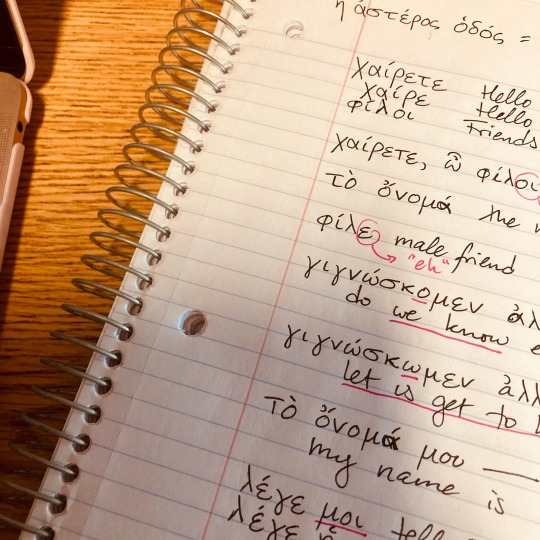 ἡ ἀστέρος ὁδός =
χαίρετε Hello
χαῖρε Hello
φίλοι Friends
χαίρετε, ὦ φίλοι
τὸ ὄνομά the
φίλε male friend
"eh"
γιγνώσκομεν ἀλλ
do we know
γιγνώσκωμεν ἀλλ
let is get to
Τὸ ὄνομά μου —
my name is
λέγε μοι tell
λέγε